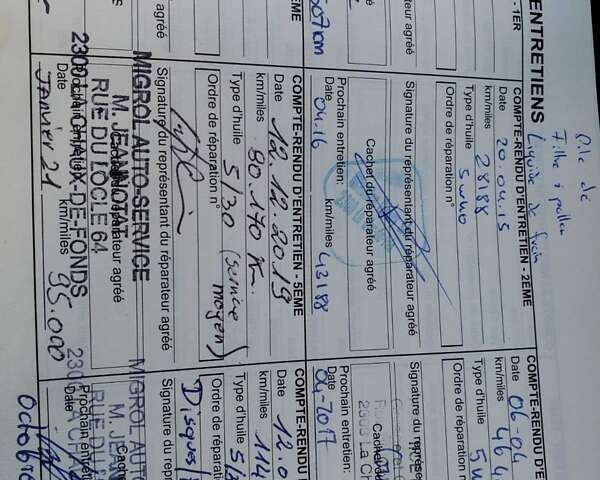 ENTRETIENS
Pile clé
Filtre à pollen
Liquide de frein
- 1ER
agréé
COMPTE-RENDU D'ENTRETIEN - 2EME
Date 20.04.15
km/miles 28188
Type d'huile 5W40
Ordre de réparation n°
Signature du représentant du réparateur agréé
Cachet du réparateur agréé
Prochain entretien:
Date 04.16 km/miles 42188
COMPTE-RENDU D'E
Date 06-04
km/miles 464
Type d'huile 5W
Ordre de réparation
Signature du représe
Cache
Prochain entretien:
Date 04-2017
EME
agréé
COMPTE-RENDU D'ENTRETIEN - 5EME
Date 12.12.2019
km/miles 80.170 Km.
Type d'huile 5/30 (service moyen)
Ordre de réparation n°
Signature du représentant du réparateur agréé
MIGROL AUTO-SERVICE
M. JEANNOTAT
RUE DU LOCLE 64
2300 LA CHAUX-DE-FONDS
Date Janvier 21 km/miles 95.000
COMPTE-RENDU D
Date 12.0
km/miles 114
Type d'huile 5/
Ordre de répar
Disques/
Signature du r
MIGROL AUT
M. JEA
RUE D
2300 LA CHA
Prochain entreti
Date Octobre